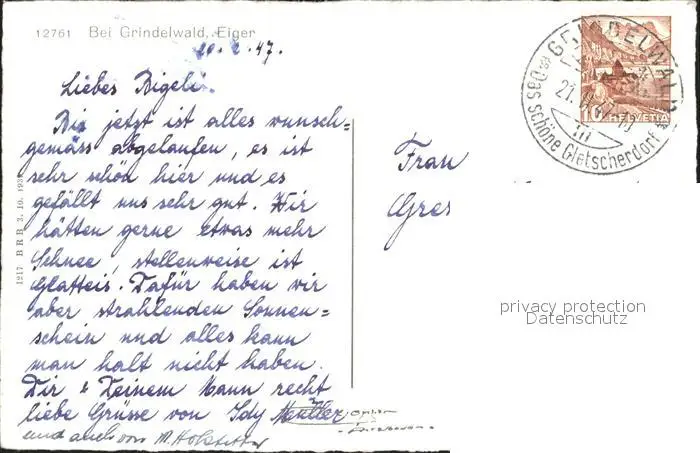 12761 Bei Grindelwald, Eiger
20. 2. 47.
Liebes Bigeli.
Bis jetzt ist alles wunsch=
gemäss abgelaufen, es ist
sehr schön hier und es
gefällt uns sehr gut. Wir
hätten gerne etwas mehr
Schnee, stellenweise ist
Glatteis. Dafür haben wir
aber strahlenden Sonnen=
schein und alles kann
man halt nicht haben.
Dir & Deinem Mann recht
liebe Grüsse von Idy Müller
und auch von
1217 BRB 3. 10. 193
GRINDELWALD
21. 47
Das schöne Gletscherdorf
10 HELVETIA
Frau
Gres
privacy protection
Datenschutz